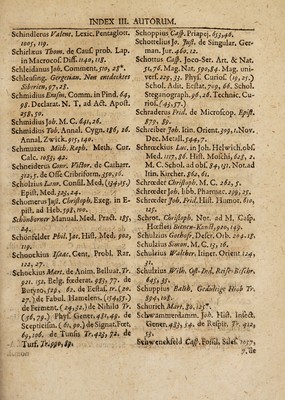 INDEX III. AUTORUM.
Schindlerus Valent. Lexic. Pentaglott.
1005, 119.
Schiræus Thom. de Cauſ. prob. Lap.
in Macrocoſ. Diſſ. 1140, 118.
Schleidanus Joh. Comment. 510, 25*.
Schleuſing. Gergeſian. Neu entdecktes
Siberien, 97, 18.
Schmidius Eraſm. Comm. in Pind. 64,
98. Declarat. N. T. ad Act. Apoſt.
258, 50.
Schmidius Joh. M. C. 641, 26.
Schmidius Tob. Annal. Cygn. 186, 26.
Annal. Zwick. 915, 140.
Schmuzen Mich. Raph. Meth. Cur.
Calc. 1053, 42.
Schneiderus Conr. Victor. de Catharr.
512, 5. de Oſſe Cribriform. 350, 16.
Scholzius Laur. Conſil. Med. (154, 15.)
Epiſt. Med. 225, 24.
Schomerus Juſt. Chriſtoph. Exeg. in E-
piſt. ad Heb. 795, 100.
Schönborner Manual. Med. Pract. 185,
24.
Schönfelder Phil. Jac. Hiſt. Med. 902,
119.
Schoockius Iſaac, Cent. Probl. Rar.
122, 27.
Schockius Mart. de Anim. Belluat. Tr.
921, 152. Belg. fœderat. 985, 77. de
Butyro, 512, 62. de Ecſtaſ. tr. (20,
27.) de Fabul. Hamelenſ. (154, 55.)
de Ferment. (24, 32.) de Nihilo Tr.
(56, 79.) Phyſ. Gener. 481, 49. de
Scepticiſm. (61, 90.) de Signat. Fœt.
69, 106. de Tunſu Tr. 423, 72. de
Turf. Tr. 990, 89.
Schoppius Caſp. Priapej. 653, 46.
Schottelius Jo. Juſt. de Singular. Ger-
man. Jur. 460, 12.
Schottus Caſp. Joco-Ser. Art. & Nat.
51, 76. Mag. Nat. 590, 84. Mag. uni-
verſ. 229, 33. Phyſ. Curioſ. (19, 25.)
Schol. Adit. Eccſtat. 719, 66. Schol.
Steganograph. 96, 26. Technic. Cu-
rioſ. (45, 57.)
Schraderus Frid. de Microſcop. Epiſt.
873, 83.
Schreiber Job. Itin. Orient. 392, 1. Nov.
Dec. Metall. 544, 7.
Schrœckius Luc. in Joh. Helwich. obſ.
Med. 1117, 56. Hiſt. Moſchi, 625, 2.
M. C. Schol. ad obſ. 84, 151. Not. ad
Itin. Kircher. 862, 61.
Schrœder Chriſtoph. M. C. 262, 5.
Schrœder Joh. bbb. Pharmac. 299, 71.
Schrœder Joh. Frid. Hiſt. Humot. 610,
125.
Schrot. Chriſtoph. Not. ad M. Caſp.
Hoeflers Bienen-Kunſt, 920, 149.
Schulzius Gothofr. Deſcr. Orb. 204, 18.
Schulzius Simon. M. C. 15, 16.
Schulzius Walther. Itiner. Orient 124,
31.
Schulzius Wilh. Oſt-Ind. Reiſe-Beſchr.
645, 35.
Schuppius Balth. Gedultige Hiob Tr.
594, 105.
Schurich Mart. 80, 125*.
Schwammerdamm. Joh. Hiſt. Inſect.
Gener. 433, 54. de Reſpir. Tr. 422,
33.
Schwenckfeld Caſp. Foſſil. Sileſ. 1057,